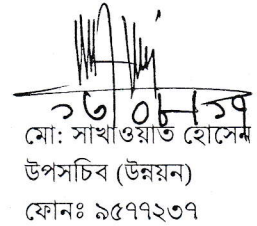 ১৩/০৮/১৭
মো: সাখাওয়াত হোসেন
উপসচিব (উন্নয়ন)
ফোনঃ ৯৫৭৭২৩৭